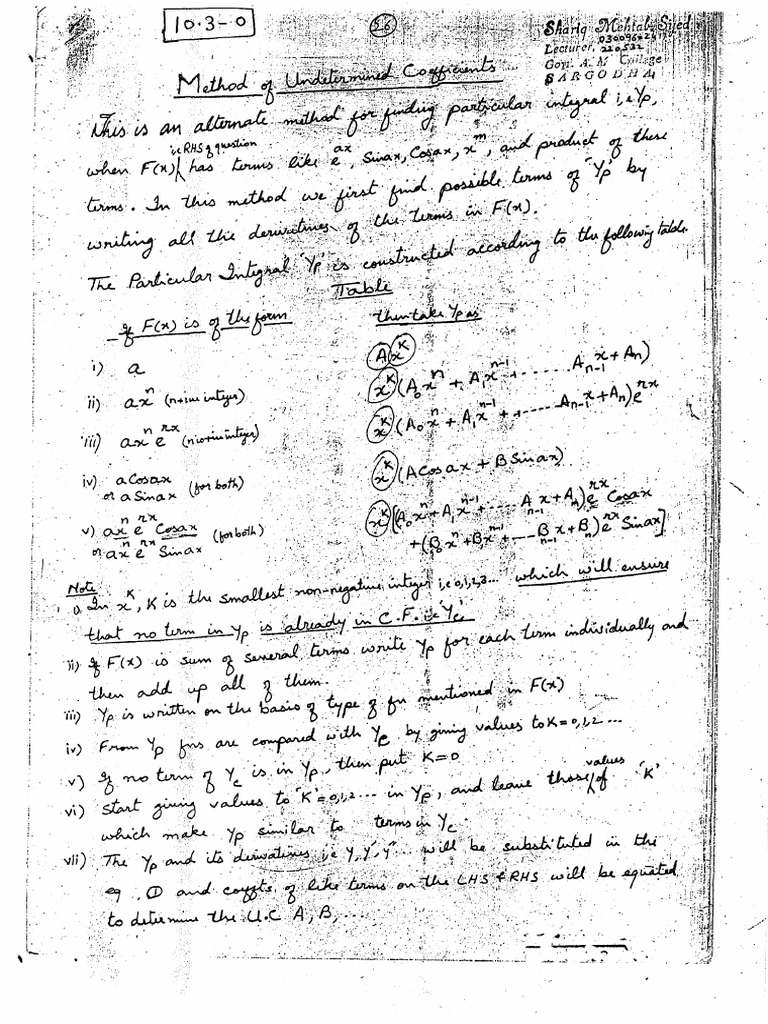 10.3-0
56
Shariq Mehtab Syed
Lecturer,
Govt. A. M. College
SARGODHA
Method of Undetermined Coefficients
This is an alternate method for finding particular integral i,e Yp,
i.e RHS of question
when F(x) has terms like e^ax, Sinax, Cosax, x^m, and product of these
terms. In this method we first find possible terms of 'Yp' by
writing all the derivatives of the terms in F(x).
The Particular Integral 'Yp' is constructed according to the following table.
Table
If F(x) is of the form then take Yp as
i) a A x^K
ii) ax^n (n +ive integer) x^K (A₀x^n + A₁x^n-1 + ...... A_n-1 x + A_n)
iii) ax^n e^rx (n is +ive integer) x^K (A₀x^n + A₁x^n-1 + ...... A_n-1 x + A_n) e^rx
iv) aCosax
or aSinax (for both) x^K (ACosax + BSinax)
v) ax^n e^rx Cosax (for both) x^K [(A₀x^n + A₁x^n-1 + .... A_n-1 x + A_n) e^rx Cosax
or ax^n e^rx Sinax + (B₀x^n + B₁x^n-1 + .... B_n-1 x + B_n) e^rx Sinax]
Note
i) In x^K, K is the smallest non-negative integer i,e 0,1,2,3... which will ensure
that no term in Yp is already in C.F. i.e 'Yc'
ii) If F(x) is sum of several terms write Yp for each term individually and
then add up all of them.
iii) Yp is written on the basis of type of fns mentioned in F(x)
iv) From Yp fns are compared with Yc by giving values to K=0,1,2 ...
v) If no term of Yc is in Yp, then put K=0
vi) Start giving values to 'K'=0,1,2 ... in Yp, and leave those values of 'K'
which make Yp similar to terms in Yc.
vii) The Yp and its derivatives i,e Y, Y', Y'' ... will be substituted in the
eq ① and coeffts of like terms on the LHS & RHS will be equated
to determine the U.C A, B, ...